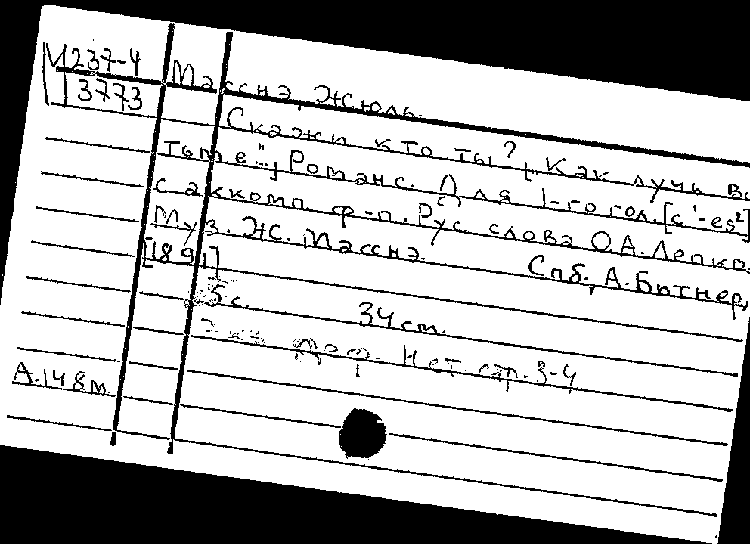 М237-4
13773
Масснэ, Жюль.
Скажи кто ты? "Как лучь во
тьме"... Романс. Для 1-го гол. [c¹-es²]
с аккомп. ф-п. Рус. слова О.А. Лепко
Муз. Ж. Масснэ. Спб., А. Битнер,
[1891]
5 с. 34 см.
Экз. деф. Нет стр. 3-4
А.148м